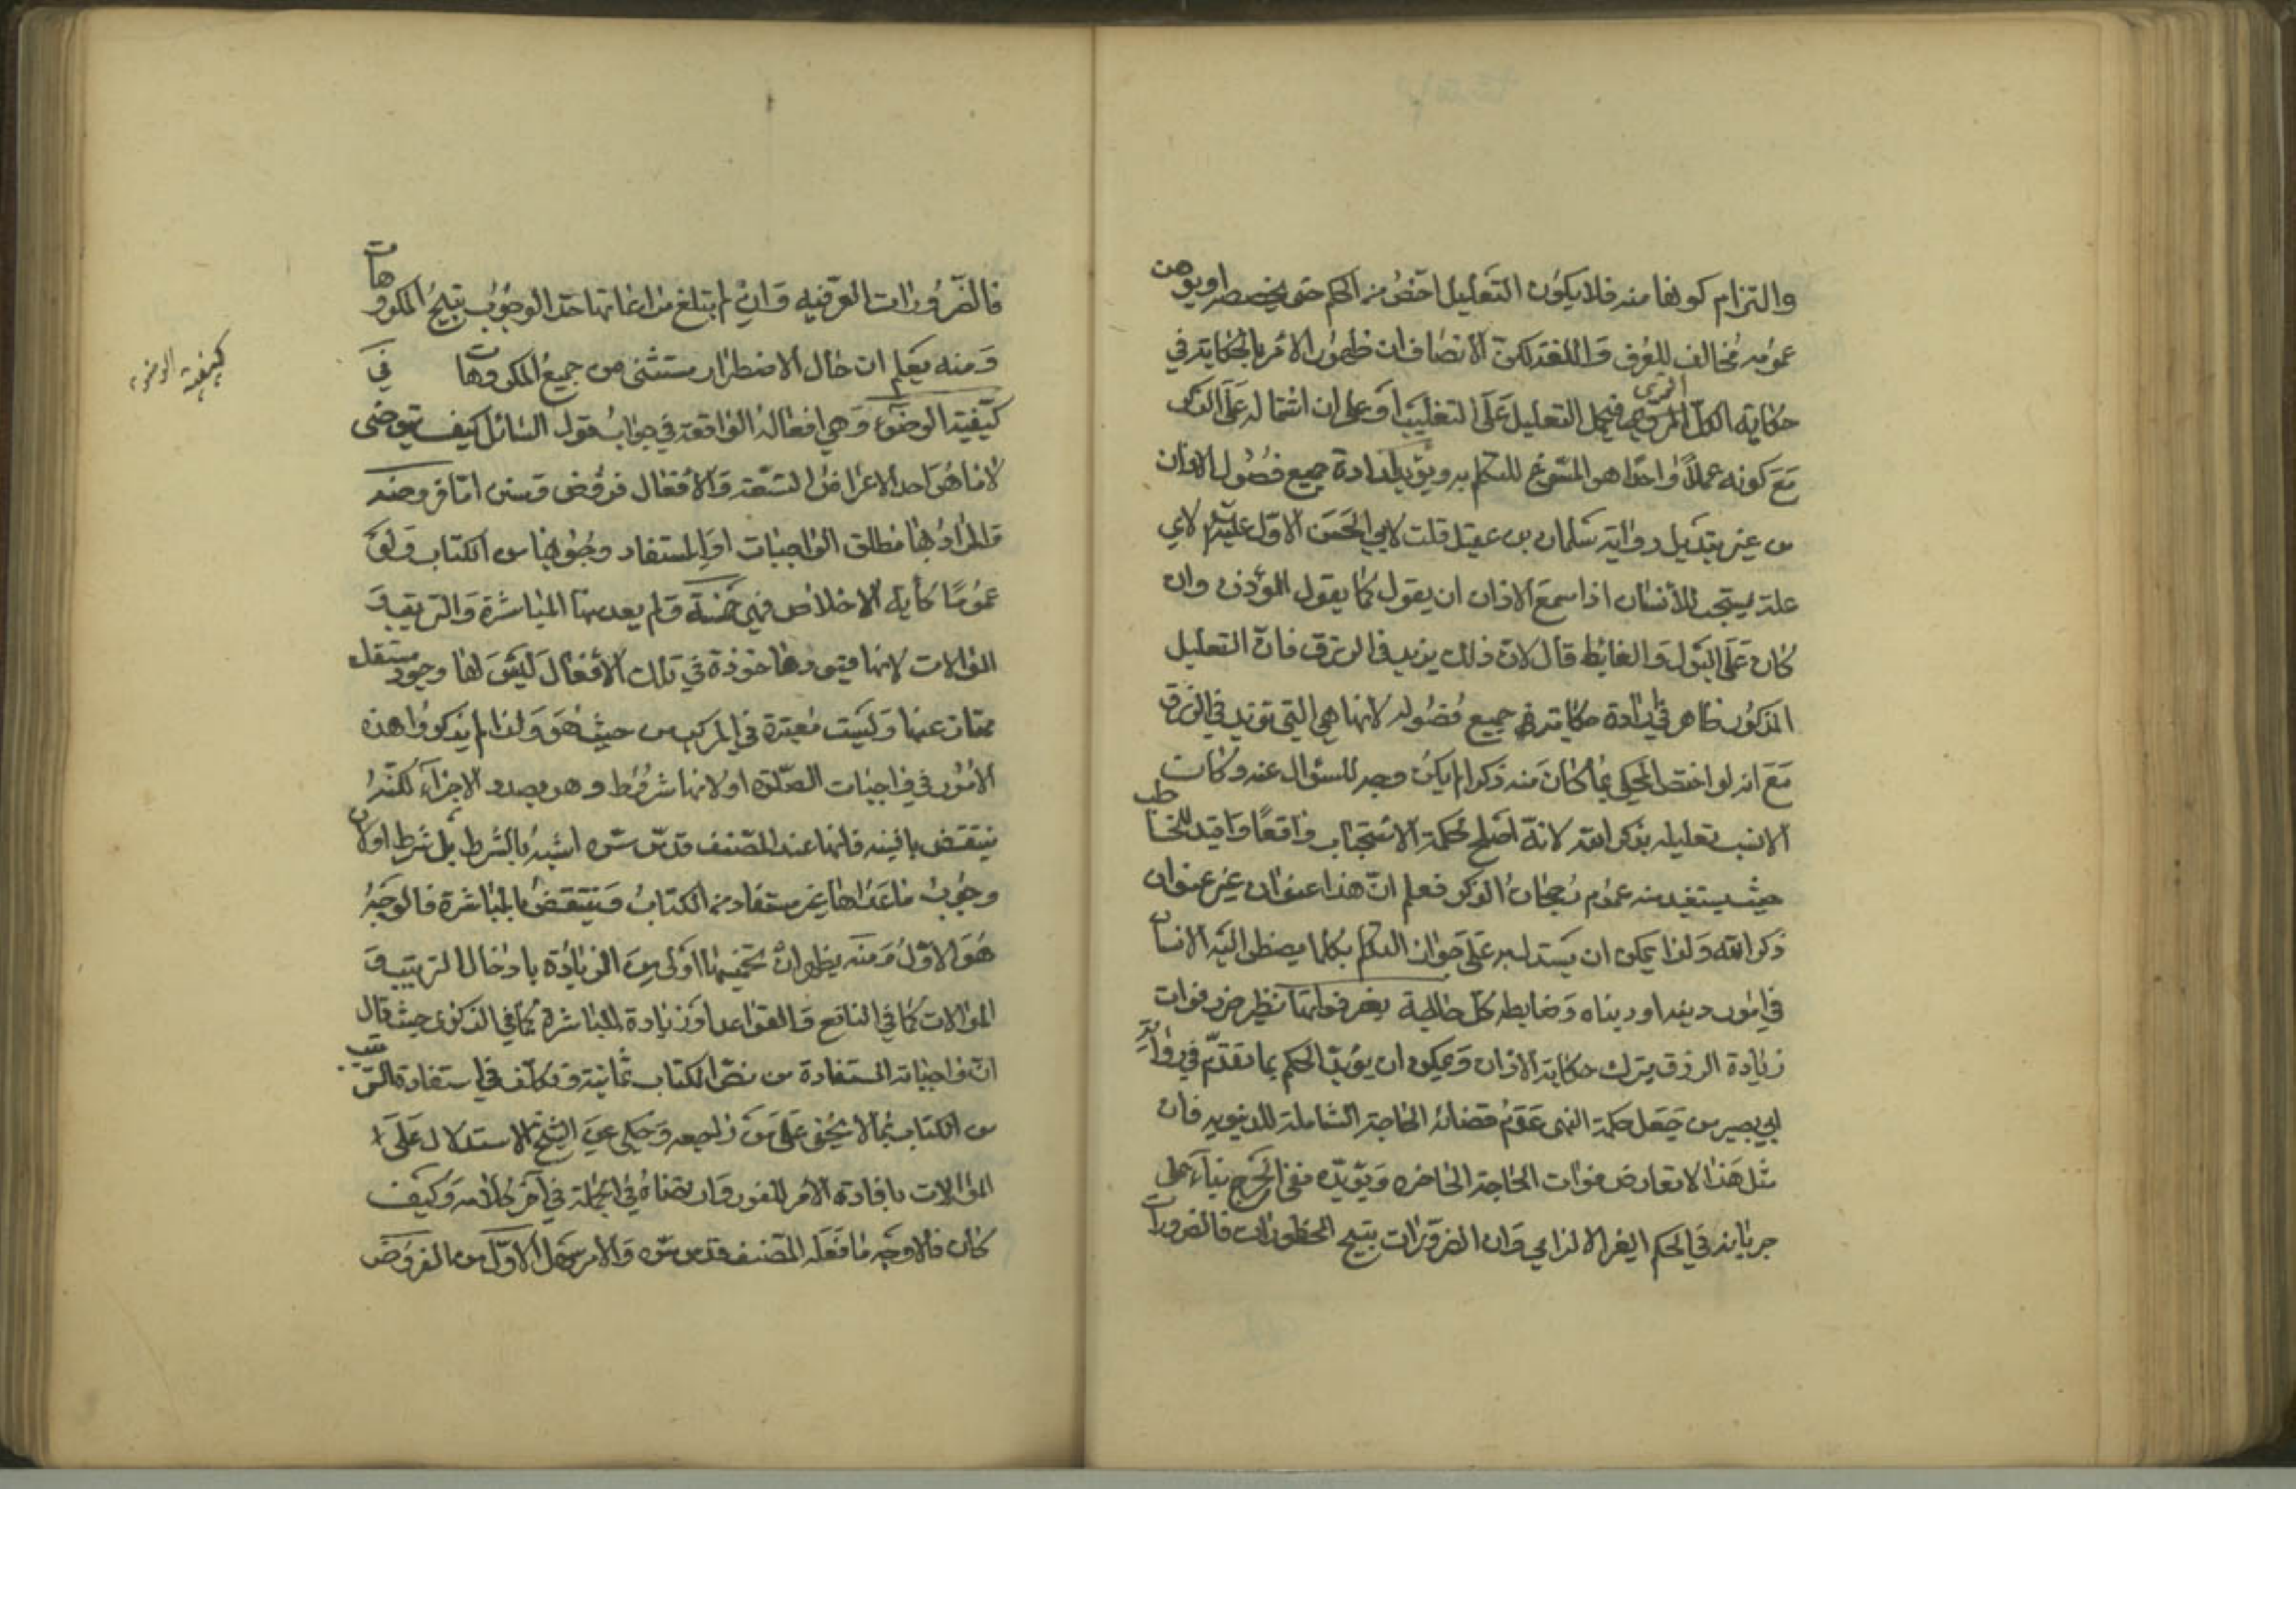 والتزام كونها منه فلا يكون التعليل اخص من الحكم حتى يخصصه او يوهن
عمومه مخالف للعرف واللغة لكن الانصاف ان ظهور الامر بالحكاية في
حكاية الكل المروي فيحمل التعليل على التغليب او على ان اشتماله على الذكر
مع كونه عملا واحدا هو المسوغ للتكلم به ويؤيد ارادة جميع فصول الاذان
من غير تبديل رواية سليمان بن عقيل قلت لابي الحسن الاول عليه لاي
علة يستحب للانسان اذا سمع الاذان ان يقول كما يقول المؤذن وان
كان على البول والغائط قال لان ذلك يزيد في الرزق فان التعليل
المذكور ظاهر في ارادة حكايته في جميع فصوله لانها هي التي تزيد في الرزق
مع انه لو اختص المحكي بما كان منه ذكرا لم يكن وجه للسؤال عنه وكان
الانسب تعليله بذكر الله لانه اصلح لحكمة الاستحباب واقعا واقيد للمخاطب
حيث يستفيد منه عموم رجحان الذكر فعلم ان هذا عنوان غير عنوان
ذكر الله ولذا يمكن ان يستدل به على جواز التكلم بكلما يضطر اليه الانسان
في امور دينه او دنياه وضابطه كل حاجة يضر فواتها نظير ضرر فوات
زيادة الرزق بترك حكاية الاذان ويمكن ان يؤيد الحكم بما تقدم في رواية
ابي بصير من جعل حكمة النهى عدم قضائه الحاجة الشاملة للدنيوية فان
مثل هذا لا يعارض فوات الحاجة الحاضرة ويؤيده نفي الحرج بناء على
جريانه في الحكم الغير الالزامي وان الضرورات تبيح المحظورات فالضرورات
فالضرورات العرفيه وان لم يبلغ مراعاتها حد الوجوب تبيح المكروهات
ومنه يعلم ان حال الاضطرار مستثنى من جميع المكروهات في
كيفية الوضوء وهي افعاله الواقعة في جواب قول السائل كيف توضى
لانها هو احد الاعراض التسعة والافعال فروض وسنن اما فروضه
والمراد بها مطلق الواجبات او المستفاد وجوبها من الكتاب ولو
عموما كاية الاخلاص فهي خمسة ولم يعد منها المباشرة والترتيب و
الموالات لانها قيود ماخوذة في تلك الافعال ليس لها وجود مستقل
ممتاز عنها وليست معتبرة في المركب من حيث هو ولذا لم يذكروا هذه
الامور في واجبات الصلوة او لانها شروط وهو بصدد الاجزاء لكنه
ينتقض بالنيه فانها عند المصنف قدس سره اشبه بالشرط بل شرط او لان
وجوب ما عداها غير مستفاد من الكتاب وينتقض بالمباشرة فالوجه
هو الاول ومنه يظهر ان تخميسها اولى من الزيادة بادخال الترتيب و
الموالات كما في النافع والقواعد او زيادة المباشرة كما في الذكرى حيث قال
ان واجباته المستفادة من نص الكتاب ثمانية وتكلف في استفادة الترتيب
من الكتاب بما لا يخفى على من راجعه وحكى عن الشيخ الاستدلال على
الموالات بافادة الامر للفور وان في الجملة في آخر كلامه وكيف
كان فالاوجه ما فعله المصنف قدس سره والامر سهل الاول من الفروض
كيفية الوضوء